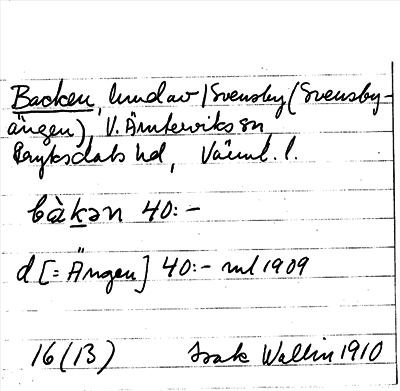 Backen, hmd av 1 Svensby (Svensby-
ängen), V. Ämterviks sn
Fryksdals hd, Värml. l.
bàkən 40:-
d [= Ängen] 40:- ml 1909
16 (13) Isak Wallin 1910